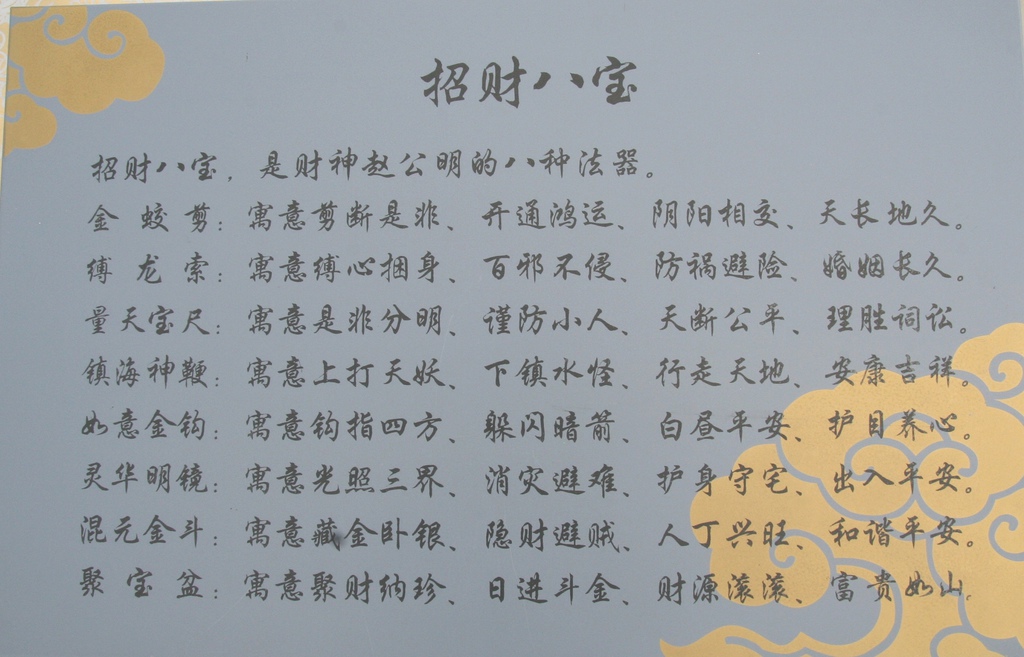 招财八宝
招财八宝，是财神赵公明的八种法器。
金蛟剪：寓意剪断是非、开通鸿运、阴阳相交、天长地久。
缚龙索：寓意缚心捆身、百邪不侵、防祸避险、婚姻长久。
量天宝尺：寓意是非分明、谨防小人、天断公平、理胜词讼。
镇海神鞭：寓意上打天妖、下镇水怪、行走天地、安康吉祥。
如意金钩：寓意钩指四方、躲闪暗箭、白昼平安、护目养心。
灵华明镜：寓意光照三界、消灾避难、护身守宅、出入平安。
混元金斗：寓意藏金卧银、隐财避贼、人丁兴旺、和谐平安。
聚宝盆：寓意聚财纳珍、日进斗金、财源滚滚、富贵如山。